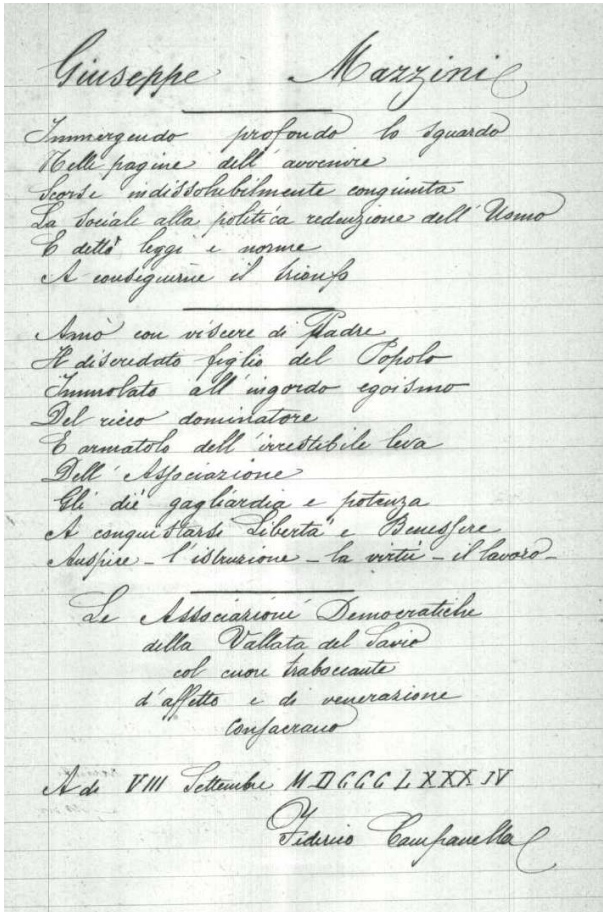 Giuseppe Mazzini
Immergendo profondo lo sguardo
Nelle pagine dell' avvenire
Scorse indissolubilmente congiunta
La sociale alla politica redenzione dell' Uomo
E dettò leggi e norme
A conseguirne il trionfo
Amò con viscere di Padre
Il diseredato figlio del Popolo
Immolato all' ingordo egoismo
Del ricco dominatore
E armatolo dell' irrestibile leva
Dell' Associazione
Gli diè gagliardia e potenza
A conquistarsi Libertà e Benessere
Auspice - l'istruzione - la virtù - il lavoro -
Le Associazioni Democratiche
della Vallata del Savio
col cuore traboccante
d'affetto e di venerazione
Consacrano
A dì VIII Settembre MDCCCLXXXIV
Federico Campanella